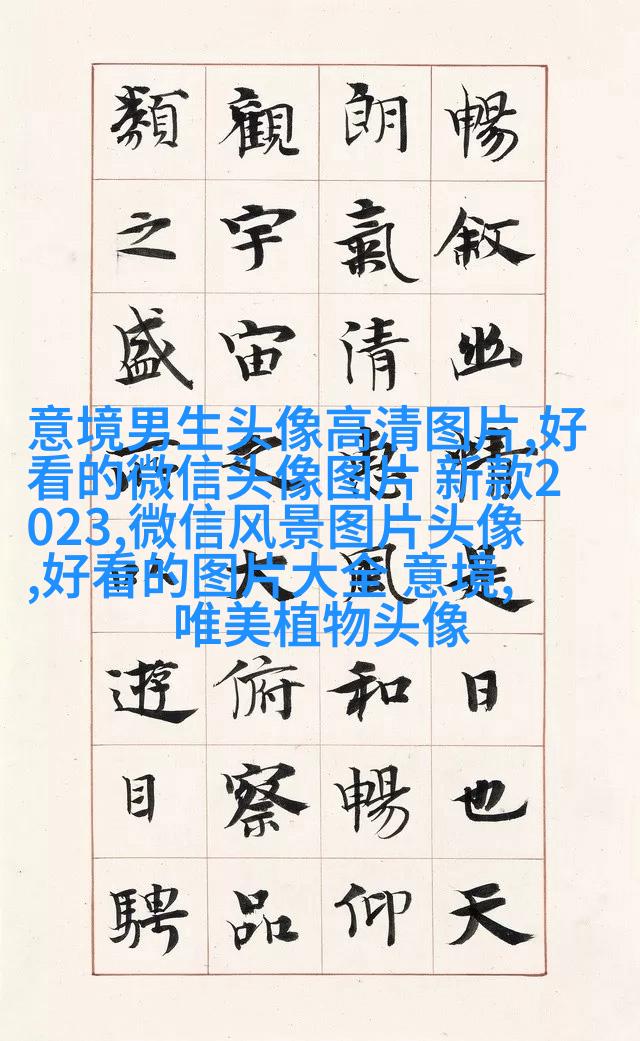 暢敘幽情是日也天
朗氣清惠風和暢仰
觀宇宙之大俯察品
類之盛所以遊目騁
意境男生头像高清图片,好
看的微信头像图片 新款2
023,微信风景图片头像
,好看的图片大全 意境,
唯美植物头像